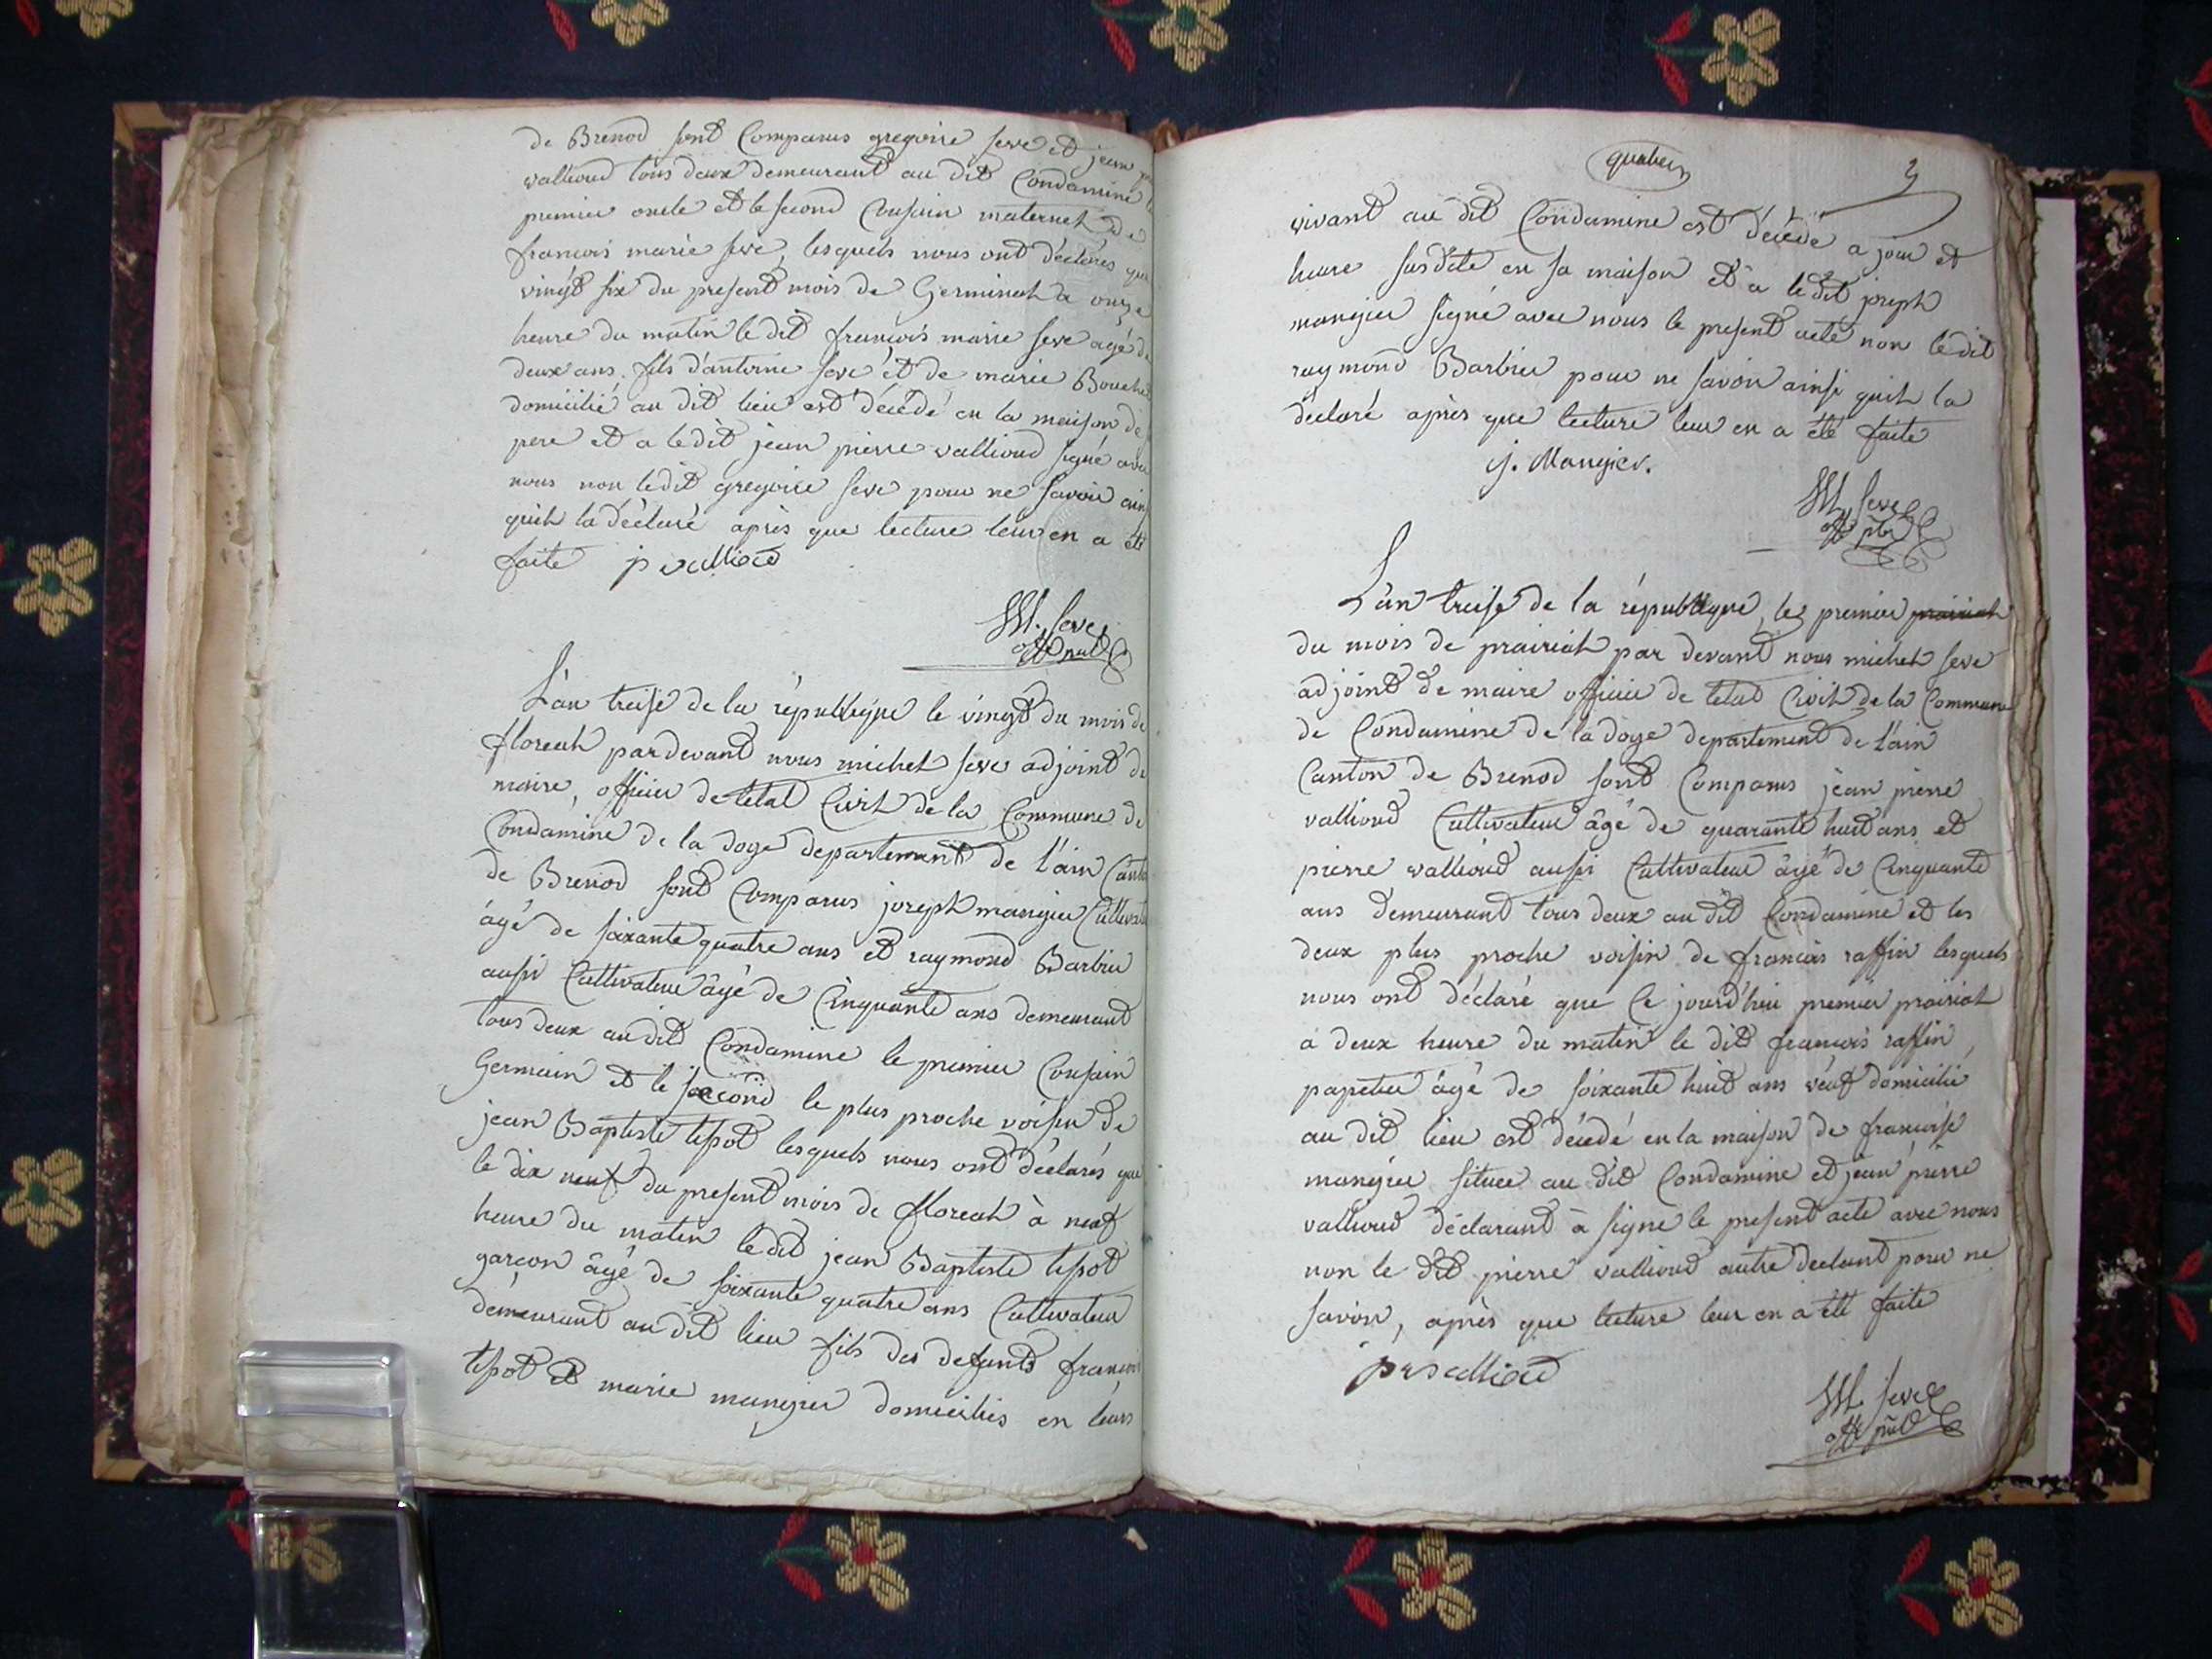 de Brenod sont Comparus gregoire seve et jean
vallioud tous deux demeurant au dit Condamine le
premier oncle et le second Cousain maternel de
francois marie seve, lesquels nous ont déclarés que
vingt six du present mois de Germinal a onze
heure du matin le dit francois marie seve agé de
deux ans fils d'antoine seve et de marie Bouchet
domicilié au dit lieu est décédé en la maison de
pere et a le dit jean pierre vallioud signé avec
nous non le dit gregoire seve pour ne savoir ains
quil la déclaré après que lecture leur en a été
faite jp vallioud
M. Seve
off. pub
L'an treise de la république le vingt du mois de
floreal pardevant nous michel seve adjoint de
maire, officier de letat Civil de la Commune de
Condamine de la doye departement de l'ain Canton
de Brenod sont Comparus joseph mangier Cultivate
âgé de soixante quatre ans et raymond Barbier
aussi Cultivateur âgé de Cinquante ans demeurant
tous deux au dit Condamine le premier Cousain
Germain et le second le plus proche voisin de
jean Baptiste tissot lesquels nous ont déclarés que
le dix neuf du present mois de floreal à neuf
heure du matin le dit jean Baptiste tissot
garcon âgé de soixante quatre ans Cultivateur
demeurant au dit lieu fils des defunts francois
tissot et marie mangier domiciliés en leurs
3
vivant au dit Condamine est décédé a jour et
heure susdite en sa maison et a le dit joseph
mangier signé avec nous le present acte non le dit
raymond Barbier pour ne savoir ainsi quil la
déclaré après que lecture leur en a été faite
j. Mangier.
M. Seve
off. pbr
L'an treise de la république, le premier prairial
du mois de prairial par devant nous michel seve
adjoint de maire officier de letat Civil de la Commune
de Condamine de la doye departement de l'ain
Canton de Brenod sont Comparus jean pierre
vallioud Cultivateur âgé de quarante huit ans et
pierre vallioud aussi Cultivateur âgé de Cinquante
ans demeurant tous deux au dit Condamine et les
deux plus proche voisin de francois raffin lesquels
nous ont déclaré que Ce jourd'hui premier prairial
a deux heure du matin le dit francois raffin,
papetier âgé de soixante huit ans veuf domicilié
au dit lieu est décédé en la maison de francoise
mangier situee au dit Condamine et jean pierre
vallioud déclarant à signé le present acte avec nous
non le dit pierre vallioud autre declant pour ne
savoir, après que lecture leur en a été faite
jp vallioud
M. Seve
off. pub